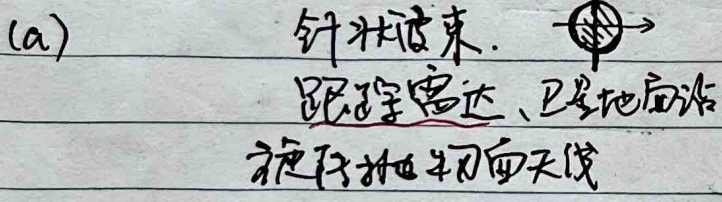 (a) 针状波束.
跟踪雷达、卫星地面站
旋转抛物面天线